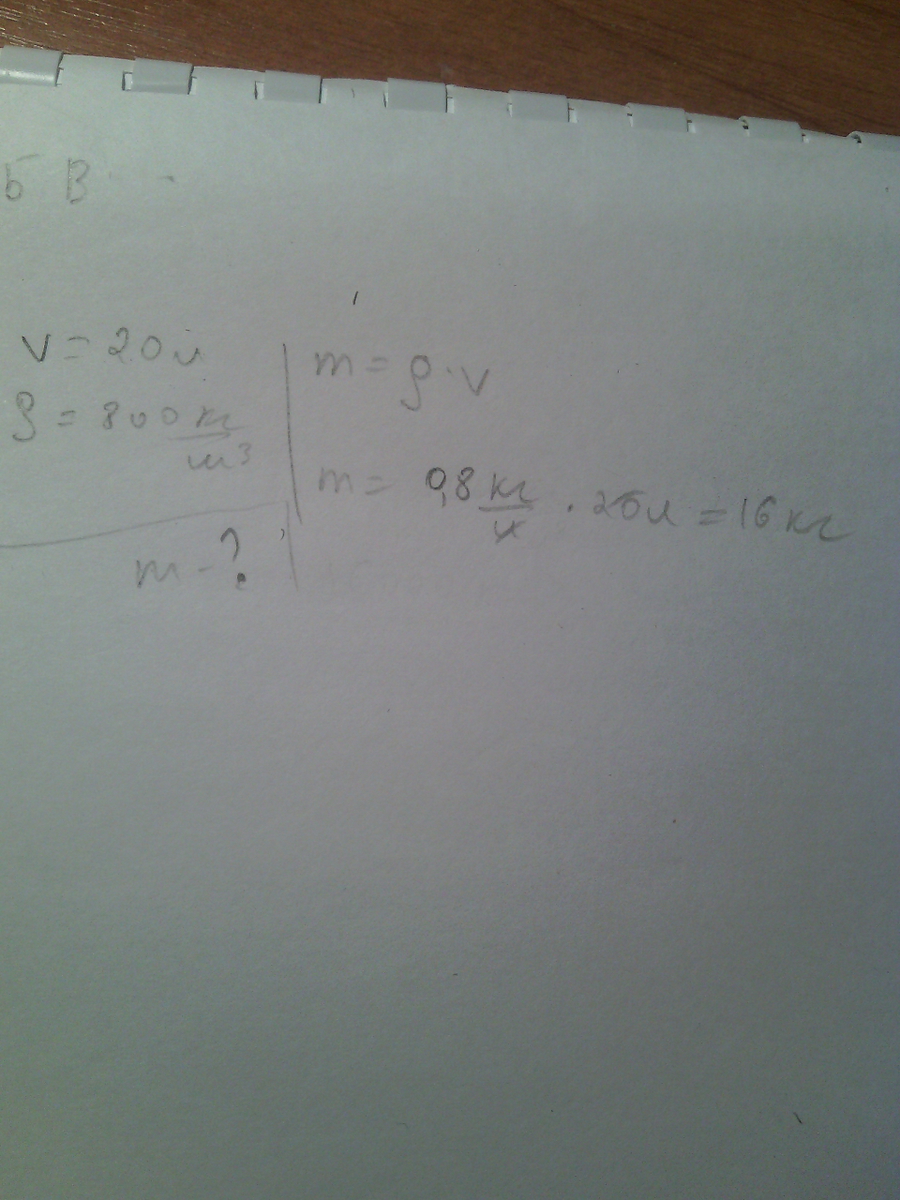 Б В
V = 20 л
ρ = 800 кг/м³
m - ?
m = ρ · V
m = 0,8 кг/л · 20 л = 16 кг